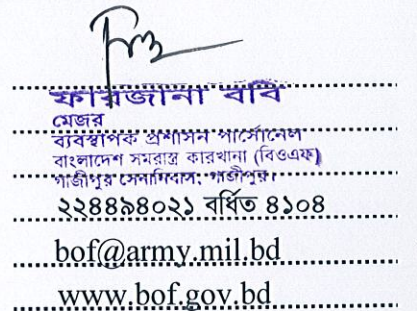 ফারজানা ববি
মেজর
ব্যবস্থাপক প্রশাসন পার্সোনেল
বাংলাদেশ সমরাস্ত্র কারখানা (বিওএফ)
গাজীপুর সেনানিবাস, গাজীপুর।
২২৪৪৯৪০২১ বর্ধিত ৪১০৪
bof@army.mil.bd
www.bof.gov.bd